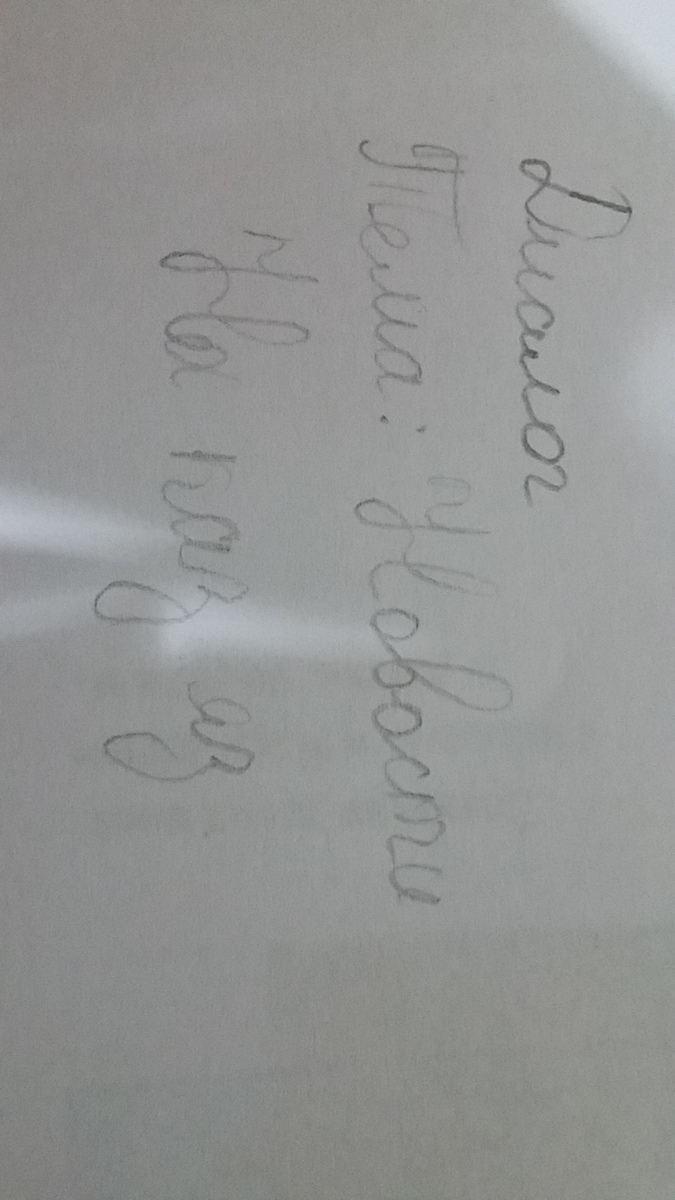 Диалог
Тема: Новости
На каз яз